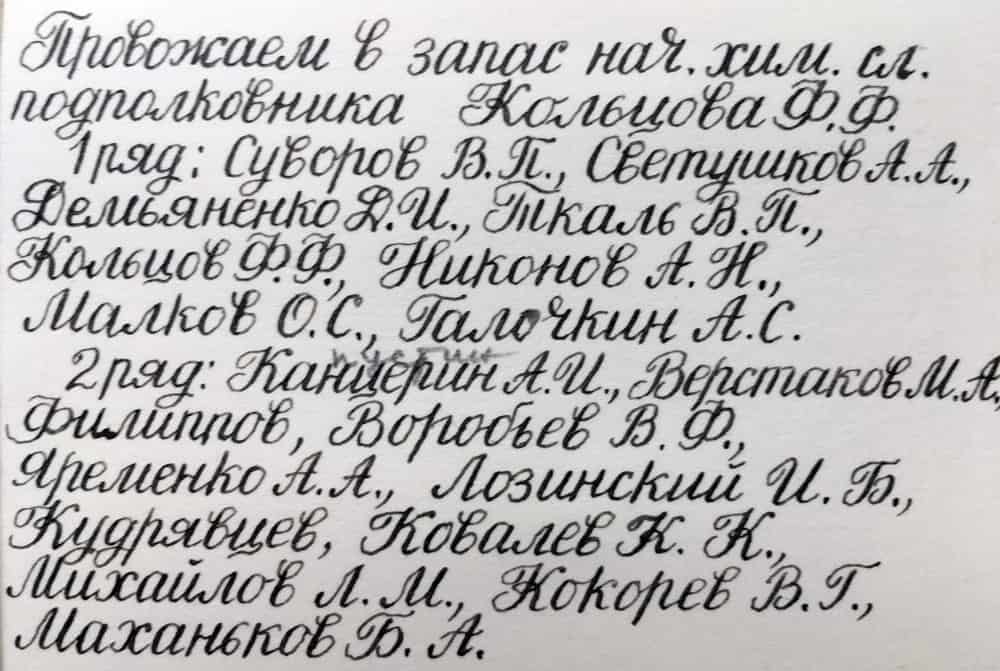 Провожаем в запас нач. хим. сл.
подполковника Кольцова Ф.Ф.
1 ряд: Суворов В.П., Светушков А.А.,
Демьяненко Д.И., Ткаль В.П.,
Кольцов Ф.Ф., Никонов А.Н.,
Малков О.С., Галочкин А.С.
2 ряд: Канцерин А.И., Верстаков М.А.
Филиппов, Воробьев В.Ф.,
Яременко А.А., Лозинский И.Б.,
Кудрявцев, Ковалев К.К.,
Михайлов Л.М., Кокорев В.Г.,
Маханьков Б.А.